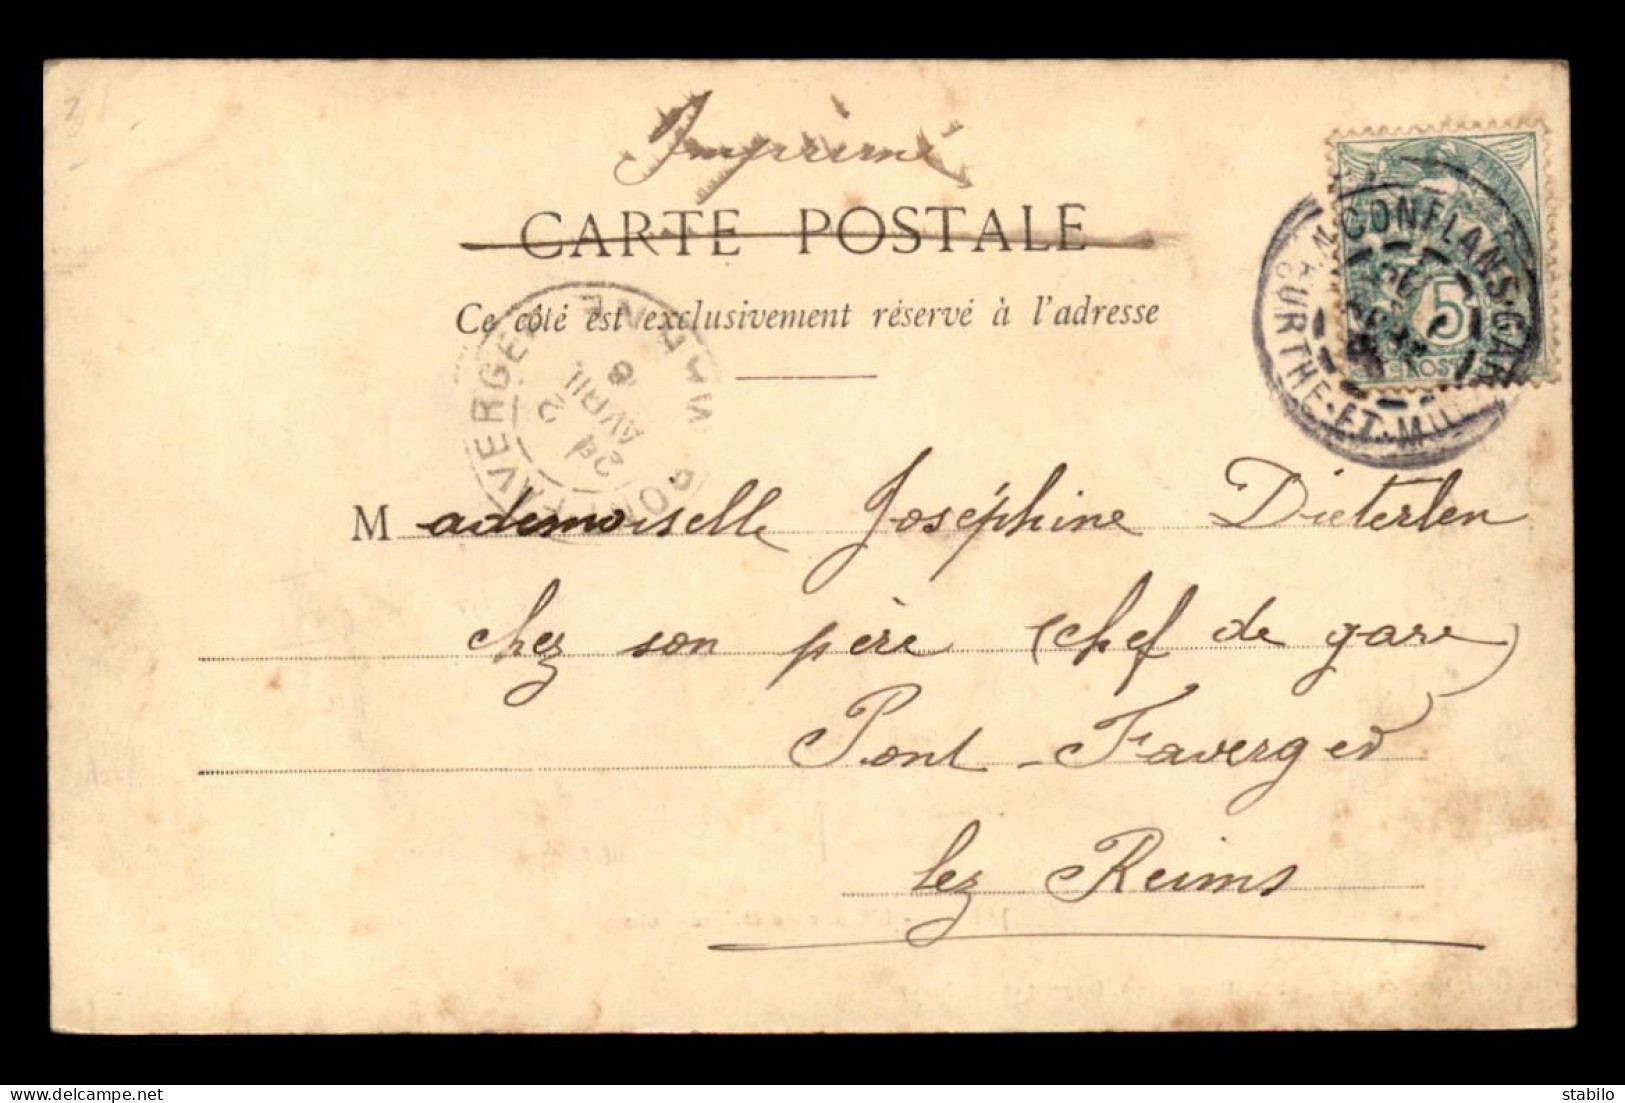 Imprimé
CARTE POSTALE
Ce côté est exclusivement réservé à l'adresse
CONFLANS-GARE
MEURTHE-ET-M
5
MARNE
AVRIL
Mademoiselle Joséphine Dieterlen
chez son père (chef de gare)
Pont-Faverger
lez Reims
stabilo